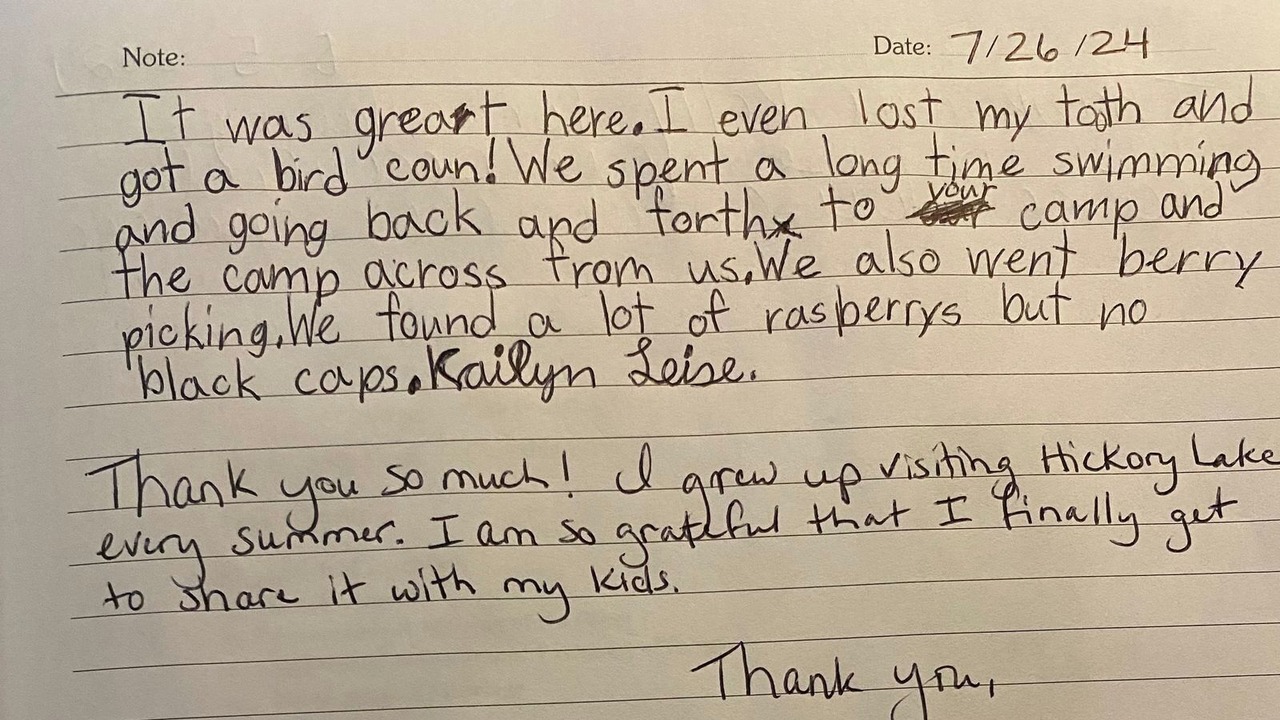 Note:
Date: 7/26/24
It was great here. I even lost my tooth and
got a bird coun! We spent a long time swimming
and going back and forth to your camp and
the camp across from us. We also went berry
picking. We found a lot of rasberrys but no
black caps. Kailyn Leise.
Thank you so much! I grew up visiting Hickory Lake
every summer. I am so grateful that I finally get
to share it with my kids.
Thank you,